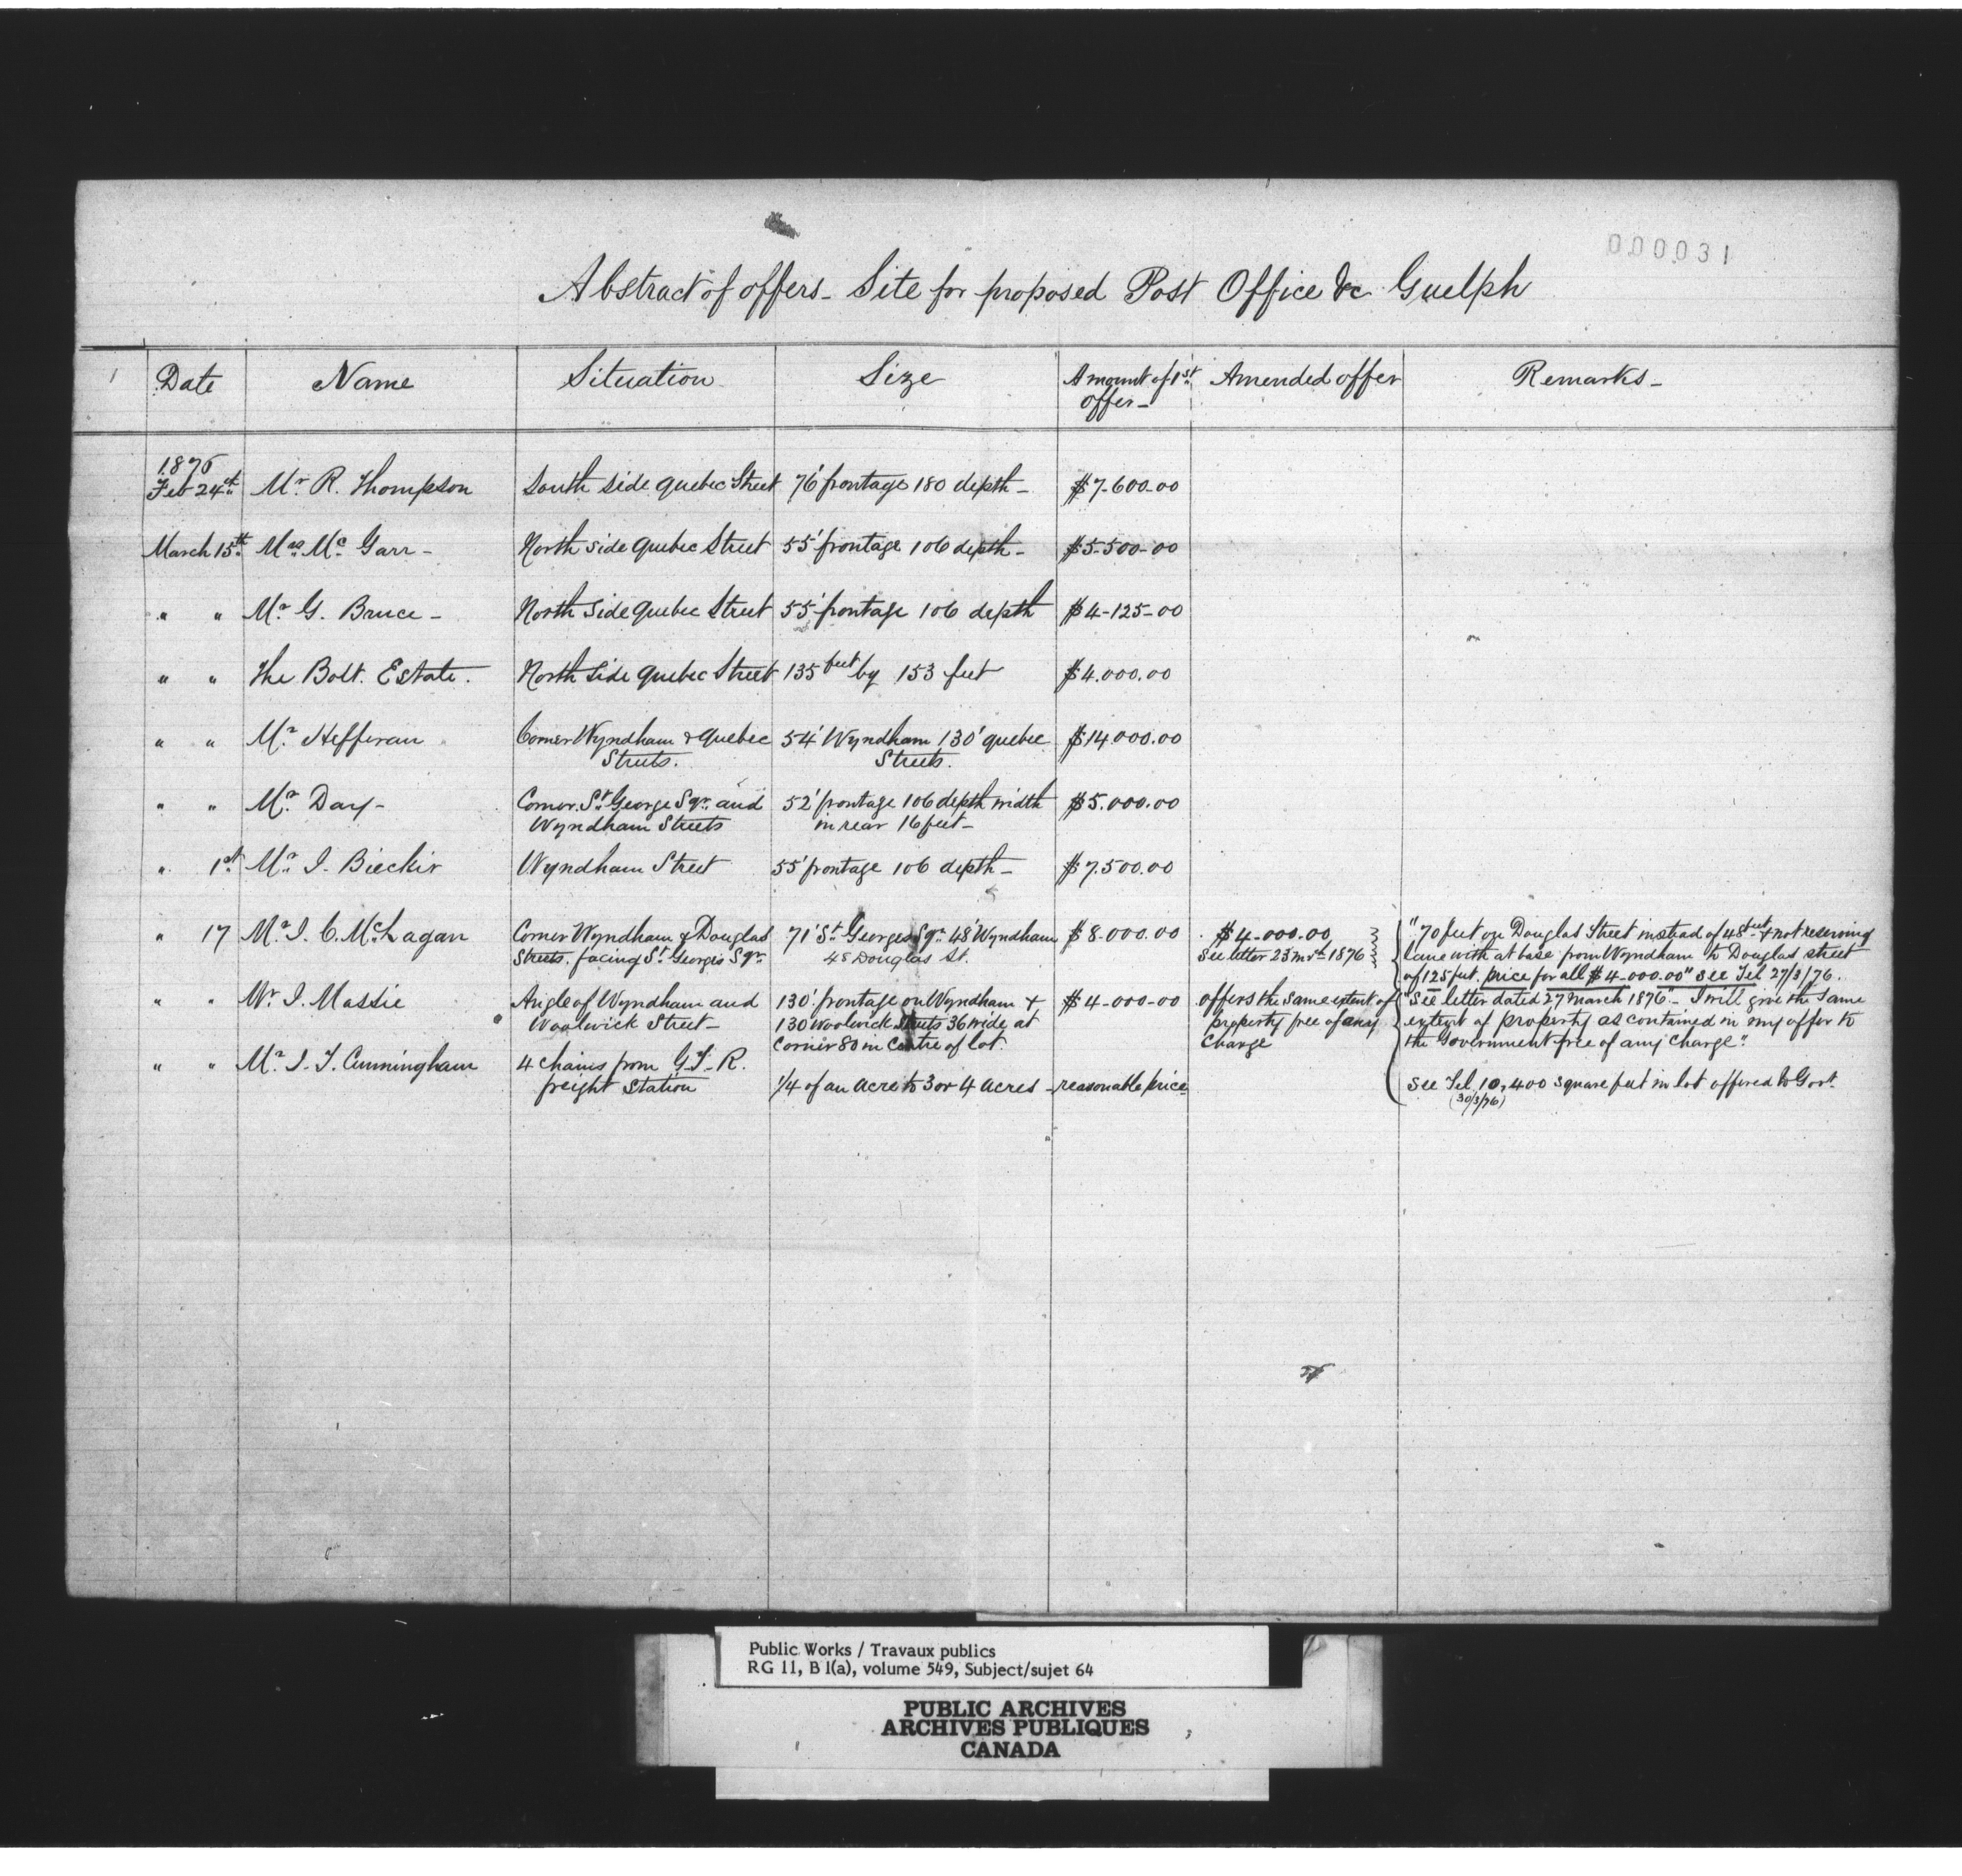 000031
Abstract of offers - Site for proposed Post Office &c Guelph
Date Name Situation Size Amount of 1st offer - Amended offer Remarks -
1876
Feb 24th Mr R. Thompson South side Quebec Street 76' frontage 180 depth - $7-600-00
March 15th Mrs Mc Garr - North side Quebec Street 55' frontage 106 depth - $5-500-00
" " Mr G. Bruce - North side Quebec Street 55' frontage 106 depth $4-125-00
" " The Bolt. Estate. North side Quebec Street 135 feet by 153 feet $4.000.00
" " Mr Heffernan Corner Wyndham & Quebec 54' Wyndham 130' Quebec $14.000.00
Streets. Streets.
" " Mr Day - Corner St George Sqr. and 52' frontage 106 depth width $5.000.00
Wyndham Streets in rear 16 feet -
" 1st Mr I. Wyndham Street 55' frontage 106 depth - $7.500.00
" 17 Mr I. C. McLagan Corner Wyndham & Douglas 71' St Georges Sqr 48' Wyndham $8-000.00 $4-000.00 "70 feet on Douglas Street instead of 48 feet & not reserving
Streets. facing St Georges Sqr 48 Douglas St. See letter 23 1876 lane with at base from Wyndham to Douglas street
of 125 feet. price for all $4-000.00" see Tel 27/3/76.
" " Mr I. Massie Angle of Wyndham and 130' frontage on Wyndham & $4-000-00 offers the same extent of "See letter dated 27 March 1876" - I will give the same
Woolwick Street - 130 Woolwick Streets 36 wide at property free of any extent of property as contained in my offer to
corner 80 in centre of lot. charge the Government free of any charge".
" " Mr I. T. Cunningham 4 chains from G.T.R.
freight Station 1/4 of an acre to 3 or 4 acres - reasonable price See Tel. 10,400 square feet in lot offered to Govt.
(30/3/76)
Public Works / Travaux publics
RG 11, B 1(a), volume 549, Subject/sujet 64
PUBLIC ARCHIVES
ARCHIVES PUBLIQUES
CANADA